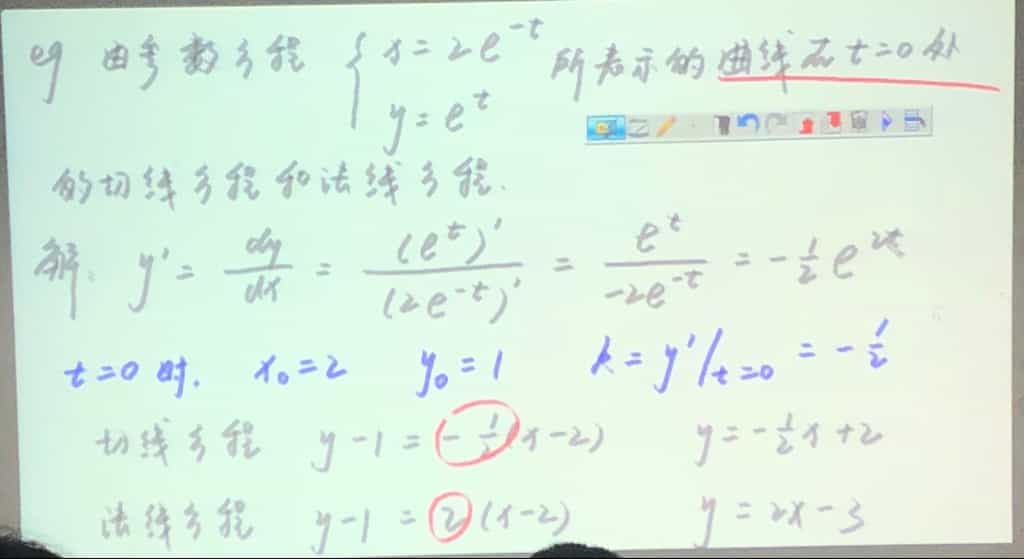 eg 由参数方程 { x=2e^{-t} 所表示的曲线在t=0处
y=e^t
的切线方程和法线方程.
解: y' = dy/dx = (e^t)'/(2e^{-t})' = e^t/-2e^{-t} = -1/2 e^{2t}
t=0时. x₀=2 y₀=1 k=y'|_{t=0} = -1/2
切线方程 y-1=-1/2(x-2) y=-1/2x+2
法线方程 y-1=2(x-2) y=2x-3